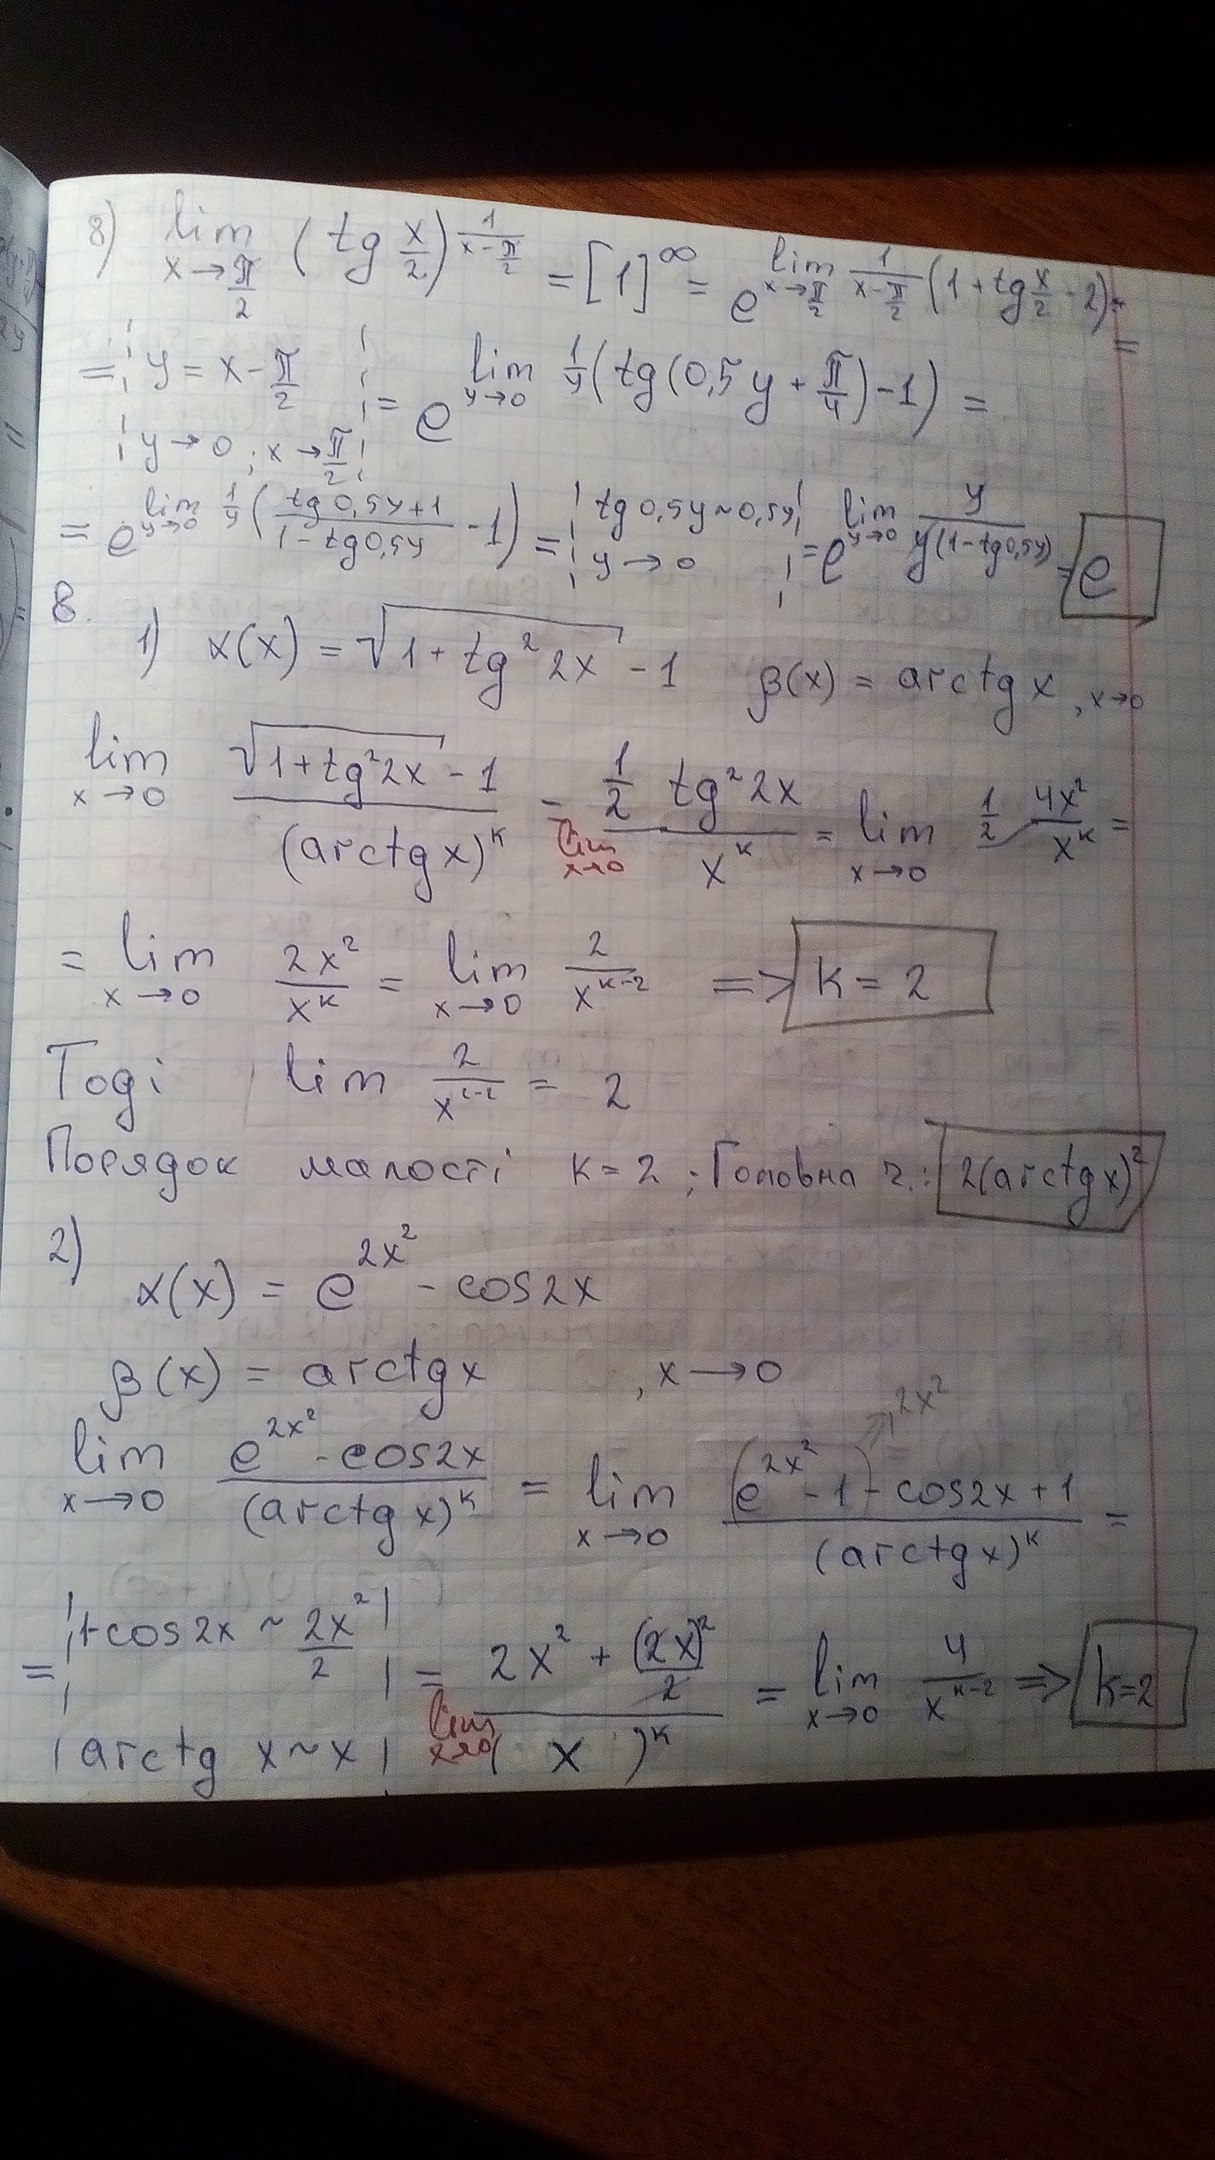 8) lim x→π/2 (tg x/2)^(1/(x-π/2)) = [1]^∞ = e^(lim x→π/2 1/(x-π/2) (1+tg x/2 - 2)) =
= | y = x - π/2 ; y→0 ; x→π/2 | = e^(lim y→0 1/y (tg(0,5y + π/4) - 1)) =
= e^(lim y→0 1/y ((tg0,5y+1)/(1-tg0,5y) - 1)) = | tg0,5y~0,5y ; y→0 | = e^(lim y→0 y/(y(1-tg0,5y))) = e
8.
1) α(x) = √(1+tg²2x) - 1 β(x) = arctgx, x→0
lim x→0 (√(1+tg²2x) - 1)/(arctgx)^k = lim x→0 (1/2 tg²2x)/x^k = lim x→0 1/2 4x²/x^k =
= lim x→0 2x²/x^k = lim x→0 2/x^(k-2) => k = 2
Тоді lim 2/x^(2-2) = 2
Порядок малості k=2 ; Головна ч.: 2(arctgx)²
2)
α(x) = e^(2x²) - cos2x
β(x) = arctgx , x→0
lim x→0 (e^(2x²) - cos2x)/(arctgx)^k = lim x→0 ((e^(2x²) - 1) - cos2x + 1)/(arctgx)^k = → 2x²
= | 1-cos2x ~ 2x²/2 ; arctg x~x | = lim x→0 (2x² + (2x)²/2)/(x)^k = lim x→0 4/x^(k-2) => k=2